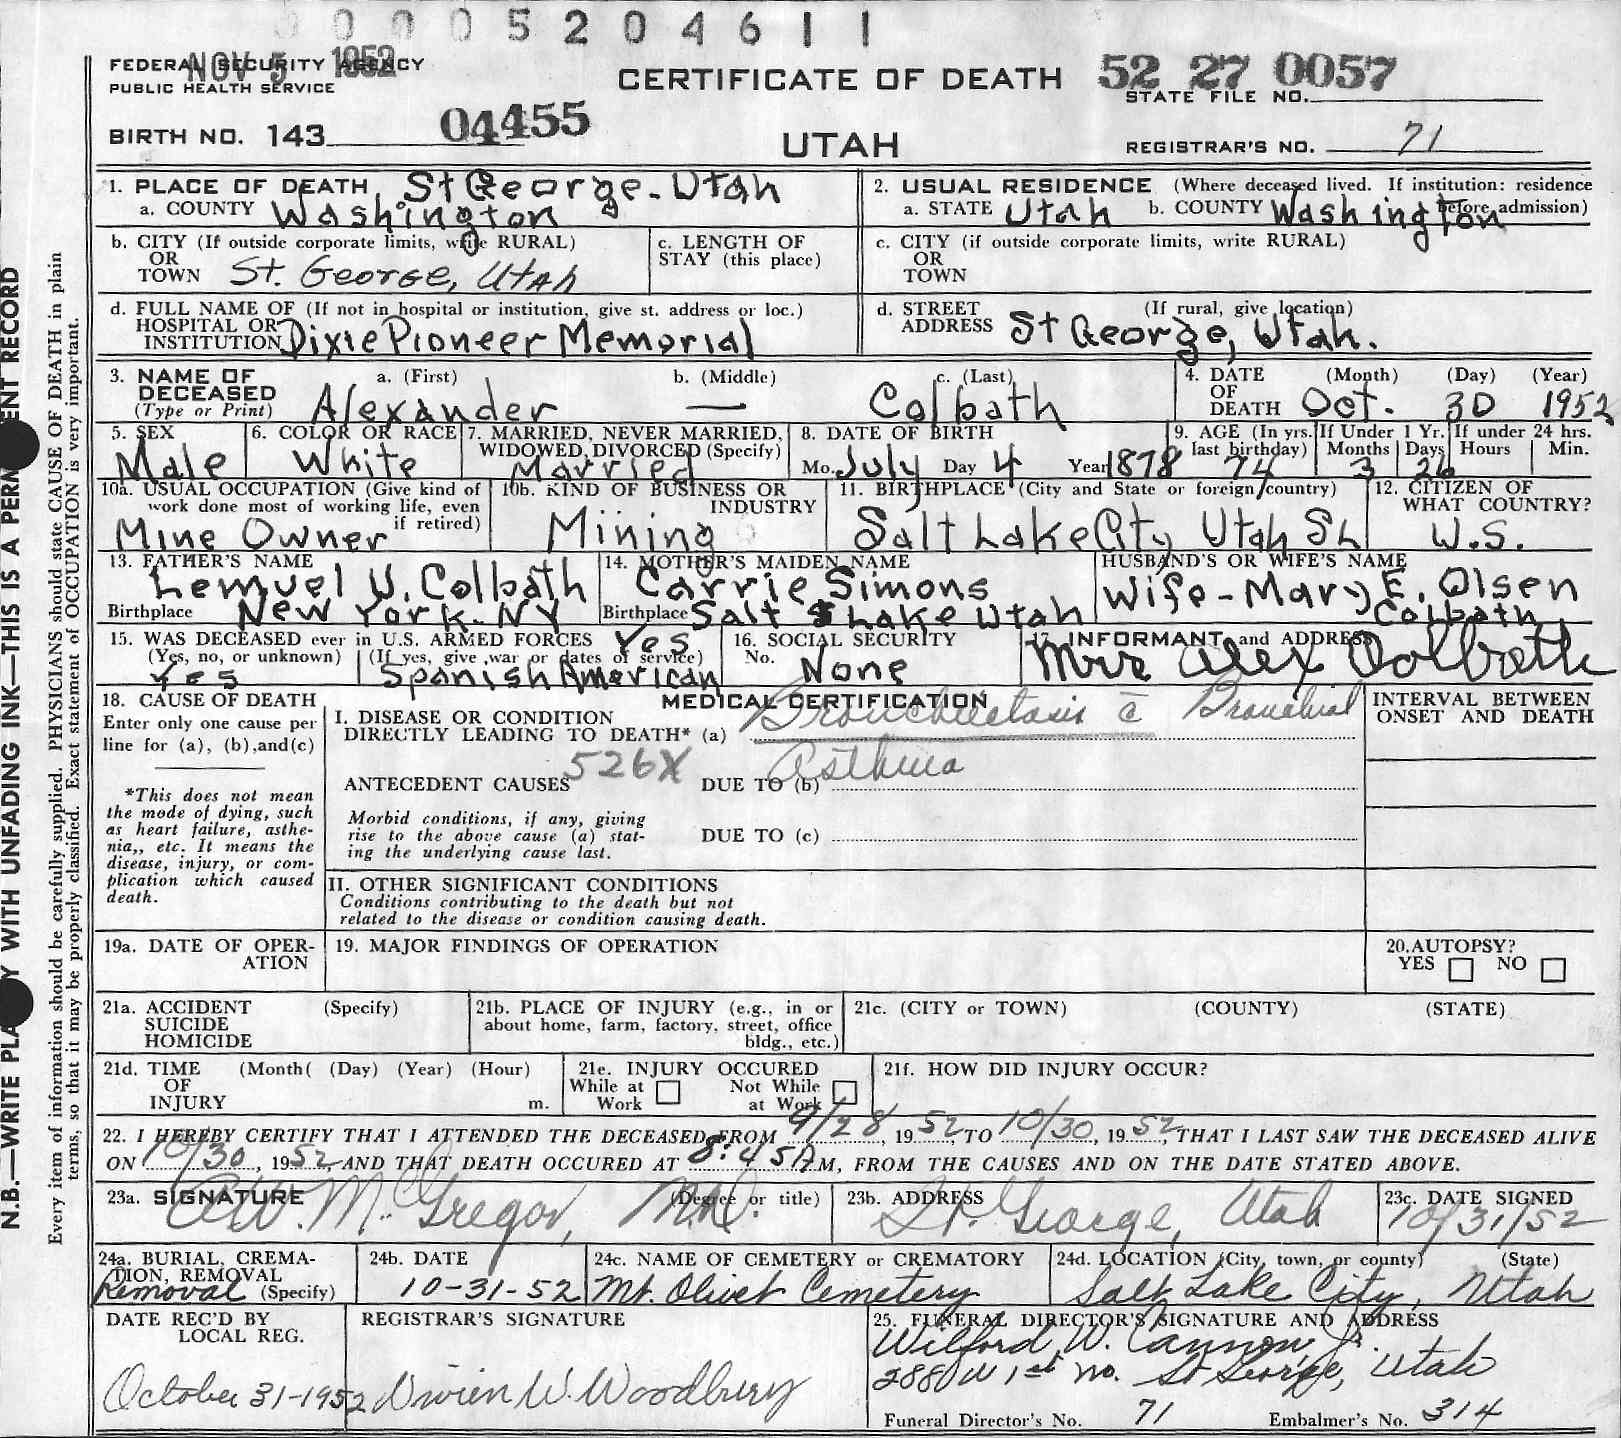 00005204611
FEDERAL SECURITY AGENCY
NOV 5 1952
PUBLIC HEALTH SERVICE
CERTIFICATE OF DEATH
52 27 0057
STATE FILE NO.
BIRTH NO. 143 04455
UTAH
REGISTRAR'S NO. 71
1. PLACE OF DEATH St George. Utah
a. COUNTY Washington
2. USUAL RESIDENCE (Where deceased lived. If institution: residence before admission)
a. STATE Utah b. COUNTY Washington
b. CITY (If outside corporate limits, write RURAL)
OR
TOWN St. George, Utah
c. LENGTH OF
STAY (this place)
c. CITY (if outside corporate limits, write RURAL)
OR
TOWN
d. FULL NAME OF (If not in hospital or institution, give st. address or loc.)
HOSPITAL OR
INSTITUTION Dixie Pioneer Memorial
d. STREET (If rural, give location)
ADDRESS St George, Utah.
3. NAME OF DECEASED
(Type or Print)
a. (First) b. (Middle) c. (Last)
Alexander — Colbath
4. DATE OF DEATH (Month) (Day) (Year)
Oct. 30 1952
5. SEX
Male
6. COLOR OR RACE
White
7. MARRIED, NEVER MARRIED,
WIDOWED, DIVORCED (Specify)
Married
8. DATE OF BIRTH
Mo. July Day 4 Year 1878
9. AGE (In yrs. last birthday)
74
If Under 1 Yr. If under 24 hrs.
Months Days Hours Min.
3 26
10a. USUAL OCCUPATION (Give kind of
work done most of working life, even
if retired)
Mine Owner
10b. KIND OF BUSINESS OR
INDUSTRY
Mining
11. BIRTHPLACE (City and State or foreign country)
Salt Lake City Utah SL
12. CITIZEN OF
WHAT COUNTRY?
U.S.
13. FATHER'S NAME
Lemuel U. Colbath
Birthplace New York. NY
14. MOTHER'S MAIDEN NAME
Carrie Simons
Birthplace Salt Lake Utah
HUSBAND'S OR WIFE'S NAME
Wife - Mary E. Olsen
Colbath
15. WAS DECEASED ever in U.S. ARMED FORCES Yes
(Yes, no, or unknown) (If yes, give war or dates of service)
Yes Spanish American
16. SOCIAL SECURITY
No. None
17. INFORMANT and ADDRESS
Mrs Alex Colbath
18. CAUSE OF DEATH
Enter only one cause per
line for (a), (b), and (c)
*This does not mean
the mode of dying, such
as heart failure, asthe-
nia,, etc. It means the
disease, injury, or com-
plication which caused
death.
MEDICAL CERTIFICATION
I. DISEASE OR CONDITION
DIRECTLY LEADING TO DEATH* (a) Bronchiectasis c̄ Bronchial
526X Asthma
ANTECEDENT CAUSES DUE TO (b)
Morbid conditions, if any, giving
rise to the above cause (a) stat-
ing the underlying cause last.
DUE TO (c)
INTERVAL BETWEEN
ONSET AND DEATH
II. OTHER SIGNIFICANT CONDITIONS
Conditions contributing to the death but not
related to the disease or condition causing death.
19a. DATE OF OPER-
ATION
19. MAJOR FINDINGS OF OPERATION
20. AUTOPSY?
YES NO
21a. ACCIDENT (Specify)
SUICIDE
HOMICIDE
21b. PLACE OF INJURY (e.g., in or
about home, farm, factory, street, office
bldg., etc.)
21c. (CITY or TOWN) (COUNTY) (STATE)
21d. TIME (Month( (Day) (Year) (Hour)
OF
INJURY m.
21e. INJURY OCCURED
While at Work Not While at Work
21f. HOW DID INJURY OCCUR?
22. I HEREBY CERTIFY THAT I ATTENDED THE DECEASED FROM 9/28, 1952, TO 10/30, 1952, THAT I LAST SAW THE DECEASED ALIVE
ON 10/30, 1952, AND THAT DEATH OCCURED AT 8:45 A M, FROM THE CAUSES AND ON THE DATE STATED ABOVE.
23a. SIGNATURE (Degree or title)
McGregor, M.D.
23b. ADDRESS
St. George, Utah
23c. DATE SIGNED
10/31/52
24a. BURIAL, CREMA-
TION, REMOVAL
Removal (Specify)
24b. DATE
10-31-52
24c. NAME OF CEMETERY or CREMATORY
Mt. Olivet Cemetery
24d. LOCATION (City, town, or county) (State)
Salt Lake City, Utah
DATE REC'D BY
LOCAL REG.
October 31-1952
REGISTRAR'S SIGNATURE
W. Woodbury
25. FUNERAL DIRECTOR'S SIGNATURE AND ADDRESS
Wilford W. Cannon, Jr.
288 W 1st No. St George, Utah
Funeral Director's No. 71 Embalmer's No. 314
N.B.—WRITE PLAINLY WITH UNFADING INK—THIS IS A PERMANENT RECORD
Every item of information should be carefully supplied. PHYSICIANS should state CAUSE OF DEATH in plain
terms, so that it may be properly classified. Exact statement of OCCUPATION is very important.